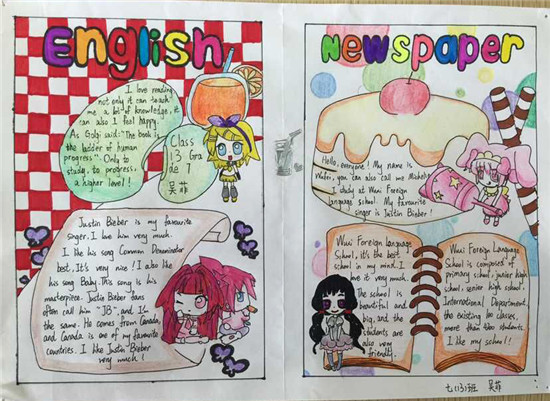 English
I love reading
not only it can teach
me a lot of knowledge, it
can also I feel happy.
As Golgi said: "The book is
the ladder of human
progress." Only to
study, to progress,
a higher level!
Class
13 Gra
de 7
吴菲
Justin Bieber is my favourite
singer. I love him very much.
I like his song Common Denominator
best. It's very nice! I also like
his song Baby. This song is his
masterpiece. Justin Bieber fans
often call him "JB", and I'm
the same. He comes from Canada,
and Canada is one of my favourite
countries. I like Justin Bieber
very much!
Newspaper
Hello, everyone! My name is
you can also call me
I study at Wuxi Foreign
language school. My favourite
singer is Justin Bieber!
Wuxi Foreign language
School, it's the best
school in my mind. I
love it very much.
The school is
beautiful and
big, and the
students are
also very
friendly.
Wuxi Foreign Language
School is composed of
primary school, junior high
school, senior high school,
International Department,
the existing classes,
more than students.
I like my school!
七(13)班 吴菲